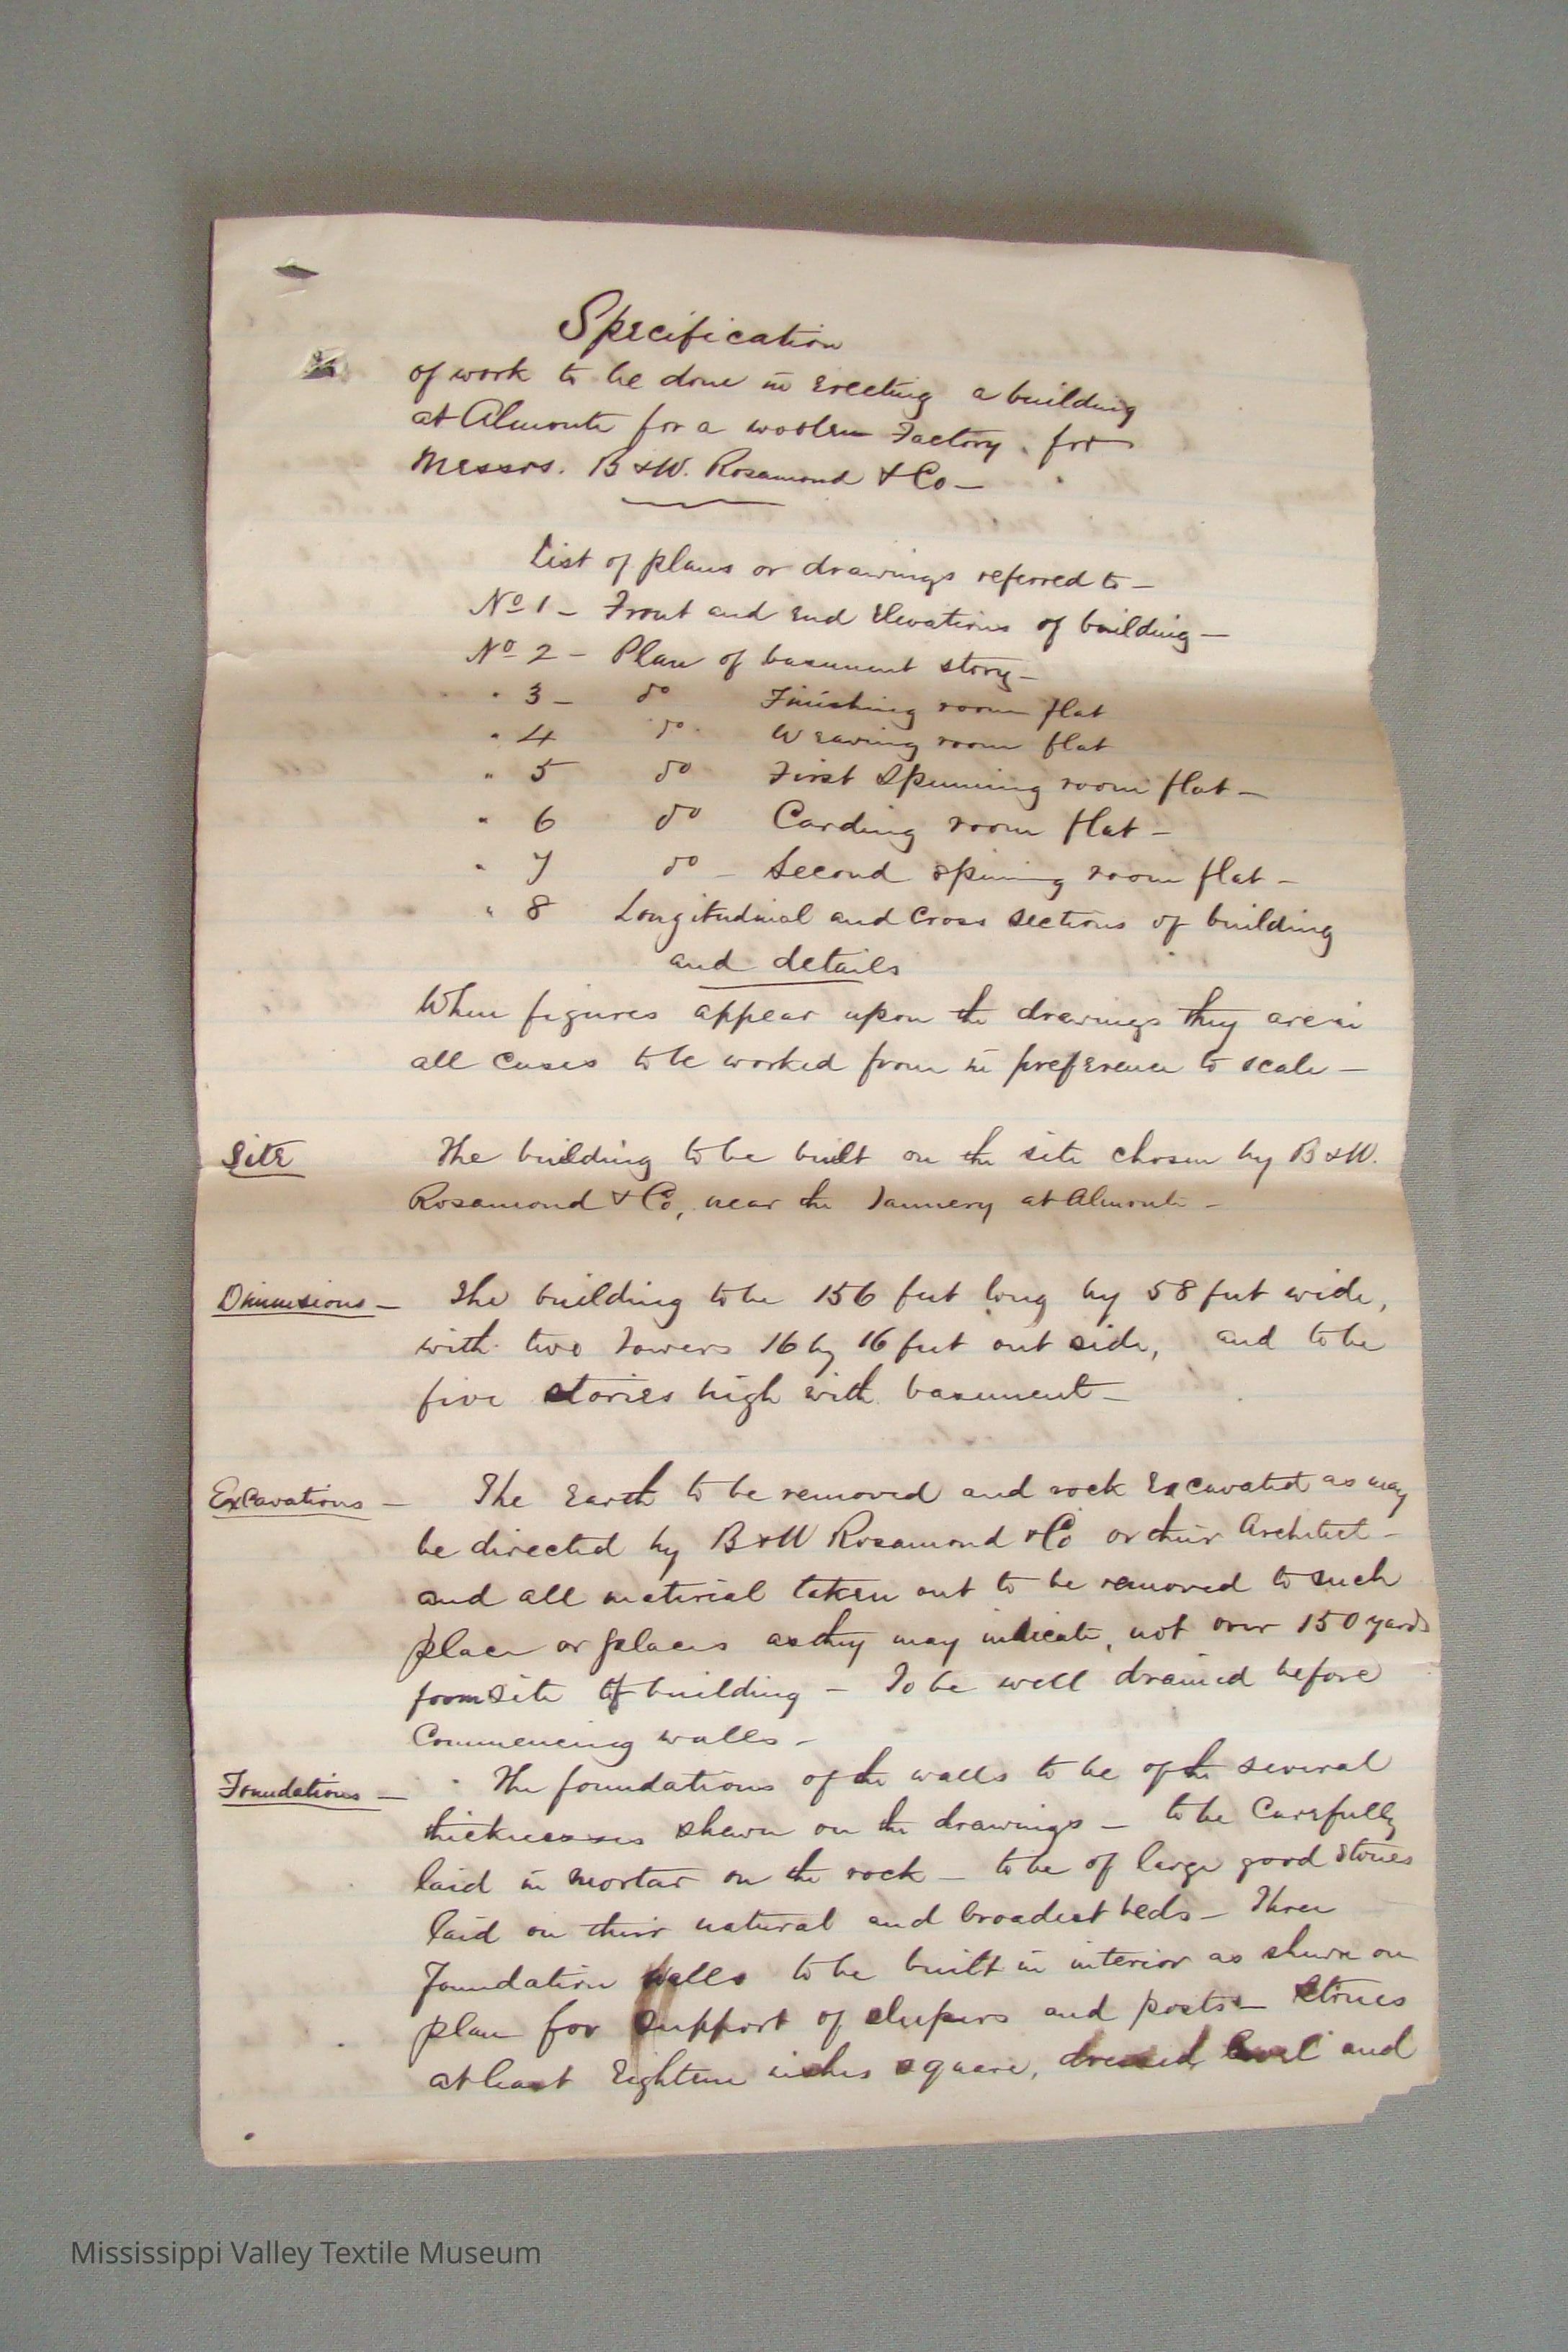 Specification
of work to be done in erecting a building
at Almonte for a woolen Factory. for
Messrs. B & W. Rosamond & Co —
List of plans or drawings referred to —
No 1 — Front and end Elevations of building —
No 2 — Plan of basement story —
" 3 — do Finishing room flat
" 4 do Weaving room flat
" 5 do First Spinning room flat —
" 6 do Carding room flat —
" 7 do — Second spining room flat —
" 8 Longitudinal and Cross Sections of building
and details
When figures appear upon the drawings they are in
all cases to be worked from in preference to scale —
Site The building to be built on the site chosen by B & W.
Rosamond & Co, near the Tannery at Almonte —
Dimensions — The building to be 156 feet long by 58 feet wide,
with two Towers 16 by 16 feet out side, and to be
five stories high with basement —
Excavations — The Earth to be removed and rock Excavated as may
be directed by B & W Rosamond & Co or their Architect —
and all material taken out to be removed to such
place or places as they may indicate, not over 150 yards
from site of building — To be well drained before
Commencing walls —
Foundations — The foundations of the walls to be of the several
thicknesses shewn on the drawings — to be Carefully
laid in mortar on the rock — to be of large good stones
laid on their natural and broadest beds — Three
Foundation walls to be built in interior as shewn on
plan for support of sleepers and posts — Stones
at least Eighteen inches square, dressed level and
Mississippi Valley Textile Museum